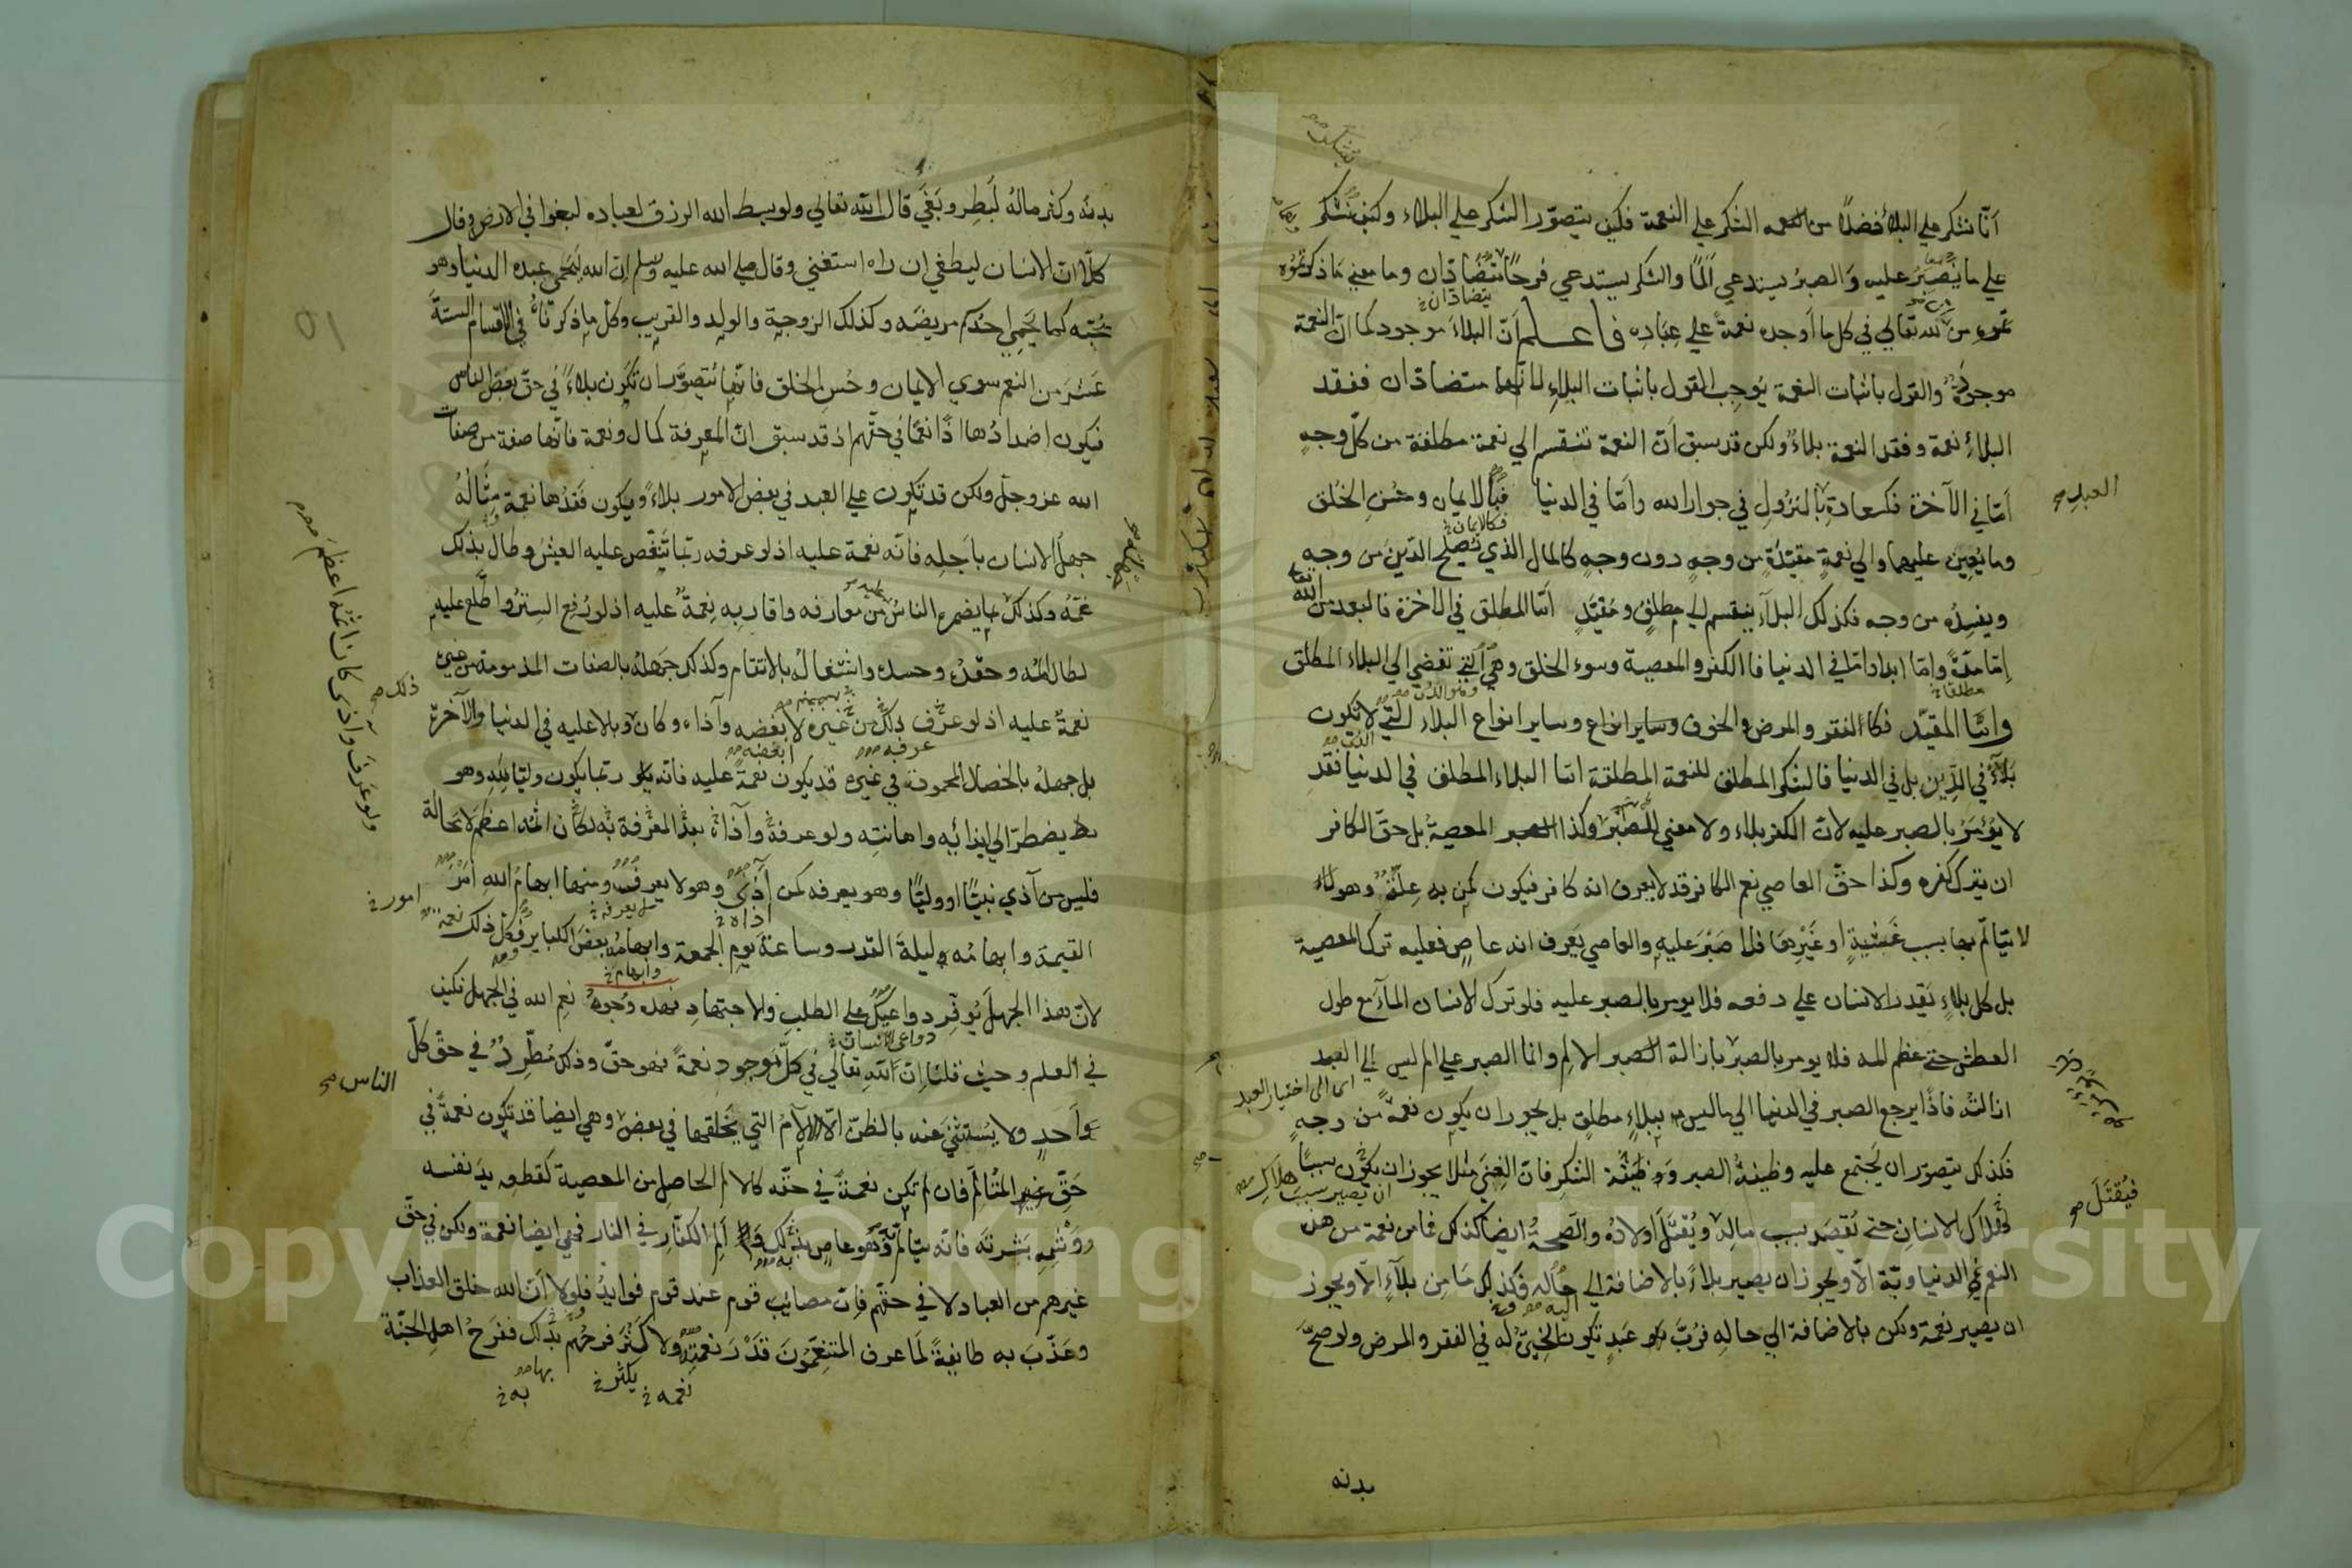 أنّا نشكر على البلاء فضلًا من النعمه الشكر علي النعمة فكيف يتصوّر الشكر علي البلاء وكيف نشكر
علي ما نصبر عليه والصبرُ يستدعي ألمًا والشكر يستدعي فرحًا متضادّان وما معني ما ذكرتموه
يتضادّان خ
من ان لله تعالي في كل ما أوجده نعمةً علي عباده فاعلم أنّ البلاءَ موجود كما انّ النعمة
موجودة والقول باثبات النعمة يوجب القول باثبات البلاءِ لانهما متضادّان ففقد
البلاءِ نعمة وفقد النعمة بلاءٌ ولكن قد سبق أنّ النعمة تنقسم الي نعمة مطلقة من كلّ وجهٍ
أمّا في الآخرة فكسعادة بالنزول في جوار الله وأمّا في الدنيا فبالايمان وحُسنِ الخُلق
العبدِ صح
فكالايمان خ
وما يُعين عليهما والي نعمةٍ مقيّدةٍ من وجهٍ دون وجهٍ كالمال الذي يُصلح الدّينَ من وجهٍ
ويفسده من وجه فكذلك البلآء ينقسم الي مطلقٍ ومُقيّدٍ أمّا المطلق في الاخرة فالبعد من الله
تعالى
إمّا مدّةً وامّا ابدا وامّا في الدنيا فالكفر والمعصية وسوء الخلق وهي التي تفضي الي البلاء المطلق
مطلقا خ
وامّا المقيّد فكالفقر والمرض والخوف وساير انواع وساير انواع البلاء التي لا تكون
بلآءً في الدّين بل في الدنيا فالشكر المطلق للنعمة المطلقة امّا البلاء المطلق في الدنيا فقد
لا يُؤمَرُ بالصبر عليه لانّ الكفر بلاء ولا معني للصبر وكذا المعصية بل حقّ الكافر
ان يترك كفره وكذا حقّ العاصي نعم الكافر قد لا يعرف انه كافر فيكون كمن به علّةٌ وهو
لا يتألّم بها بسبب غشيةٍ او غيرها فلا صبْرَ عليه والعاصي يَعرف انه عاصٍ فعليه ترك المعصية
بل كل بلاءٍ يَقدر الانسان علي دفعه فلا يومر بالصبر عليه فلو ترك الانسان المآءَ مع طول
العطش حتى عظم المه فلا يومر بالصبر بازالة الالم وانما الصبر علي الم ليس الي العبد
اى الى اختيار العبد
ازالته فاذًا يرجع الصبر في الدنيا الي ما ليس ببلاءٍ مطلقٍ بل يجوز ان يكون نعمةً من وجهٍ
فكذلك يتصوّر ان يَجتمع عليه وظيفةُ الصبر ووظيفة الشكر فانّ الغِنَي مثلا يجوز ان يكون سببًا
ان يصير سبب هلاك
لهلاك الانسان حتى يُقصَد بسبب ماله ويُقتَلَ اولادُه والصحّةُ ايضًا كذلك فما من نعمة من هذه
فيُقتَلَ صح
النعم الدنياويّة الّا ويجوز ان يصير بلاءً بالاضافة الي حاله فكذلك ما من بلآءٍ الّا ويجوز
ان يصير نعمة ولكن بالاضافة الي حاله فرُبّ عبدٍ تكون الخيرة له في الفقر والمرض ولو صحّ
بدنه
بدنه وكثر ماله لبطِر وبَغَي قال الله تعالي ولو بسط الله الرزق لعباده لبغوا في الارض وقال
كلّا انّ الانسان ليطغي ان رآه استغني وقال صلى الله عليه وسلم انّ الله ليَحمي عبده الدنيا وهو
يُحبّه كما يَحمي احدكم مريضَه وكذلك الزوجة والولد والقريب وكل ما ذكرناهُ في الاقسام الستّةَ
عشرَ من النعم سوي الايمان وحُسنِ الخلق فانّها يُتصوّر ان تكون بلاءً في حقّ بعض الناس
فيكون اضدادُها اذًا نعمًا في حقّهم اذ قد سبق انّ المعرفة كمال ونعمة فانّها صفة من صفات
الله عز وجل ولكن قد تكون علي العبد في بعض الامور بلاءً ويكون فقدُها نعمة مِثالُهُ
جهلُ الانسان باجله فانّه نعمة عليه اذ لو عرفه ربّما تنغّص عليه العيشُ وطال بذلك
غمّهُ وكذلك ما يضمره الناسُ من معارفه واقاربِه نِعمةٌ عليه اذ لو رُفع السِترُ واطّلع عليه
لطال المُه وحقدُه وحسدُه واشتغالُه بالانتقام وكذلك جهلهُ بالصفات المذمومة من غيره
ذلك صح
نعمةٌ عليه اذ لو عرَف ذلك من غيره لابغضه وآذاه وكان وبالا عليه في الدنيا والآخرة
عرفه
ابغضه
بل جهلهُ بالخصال المحمودة في غيره قد يكون نعمةً عليه فانّه ربّما يكون وليًّا لله وهو
يضطرّ الي ايذائِه واهانته ولو عرفه وآذاه بعد المعرفة به لكان اثمه اعظم لا محالة
ولو عَرفَ وآذى كان اثمُه اعظمَ
فليس من آذي نبيًّا او وليًّا وهو يعرفه كمن آذى وهو لا يعرف ومنها ابهامُ الله أمْرَ
امور خ
اذاه خ
لا يعرفه خ
القيمة وابهامُه ليلةَ القدر وساعةَ يوم الجمعة وابهامُه بعضَ الكبايرِ فكلّ ذلك نعمة
وابهام خ
لانّ هذا الجهلَ يُوفّر دواعيكُ على الطلبِ والاجتهادِ فهذه وُجوهُ نعم الله في الجهل فكيف
دواعى الانسان خ
في العلم وحيث قلنا انّ لله تعالي في كلّ موجود نعمةً فهو حقّ وذلك مُطّرِدٌ في حقّ كلّ
الناس صح
واَحدٍ ولا يُستثني عنه بالظنّ الّا الآلامُ التي يَخلقها في بعض وهي ايضا قد تكون نعمةً في
حَقّ غير المتألّم فان لم تكن نعمةً في حقّه كالالم الحاصل من المعصية كقطعه يدَ نفسه
ووَشْمِه بَشرتَه فانّه يتألّم به وهو عاصٍ بذلك وألم الكفّار في النار فهي ايضا نعمة ولكن في حقّ
غيرهم من العباد لا في حقّهم فانّ مصائب قوم عند قوم فوايدُ فلولا أنّ الله خلق العذاب
وعَذّبَ به طايفةً لَما عرف المتنعّمونَ قدْرَ نعمته ولا كثُرَ فرحُهم بذلك ففرَحُ اهل الجنّة
نعمه خ
يكثر خ
بها
به خ